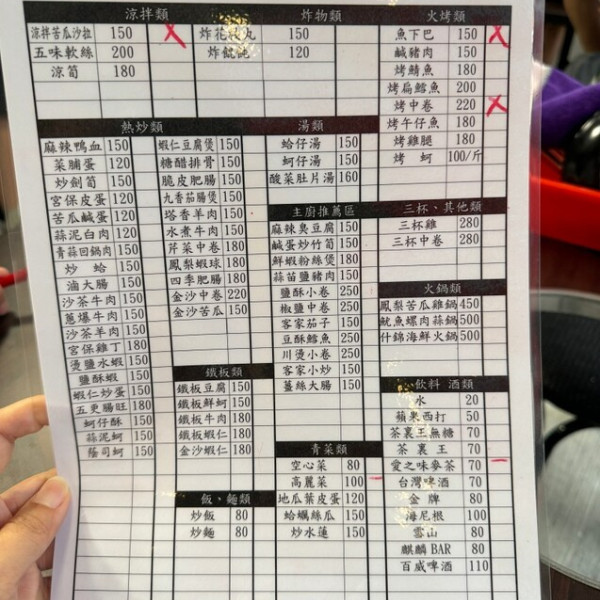 涼拌類
涼拌苦瓜沙拉 150
五味軟絲 200
涼筍 180
炸物類
炸花枝丸 150
炸餛飩 120
火烤類
魚下巴 150
鹹豬肉 150
烤鯖魚 180
烤扁鱈魚 200
烤中卷 220
烤午仔魚 180
烤雞腿 180
烤 蚵 100/斤
熱炒類
麻辣鴨血 150
菜脯蛋 120
炒劍筍 150
宮保皮蛋 120
苦瓜鹹蛋 120
蒜泥白肉 120
青蒜回鍋肉 150
炒 蛤 150
滷大腸 150
沙茶牛肉 150
蔥爆牛肉 150
沙茶羊肉 150
宮保雞丁 180
燙鹽水蝦 150
鹽酥蝦 150
蝦仁炒蛋 150
五更腸旺 180
蚵仔酥 150
蒜泥蚵 150
蔭司蚵 150
蝦仁豆腐煲 150
糖醋排骨 150
脆皮肥腸 150
九香茄腸煲 150
塔香羊肉 150
水煮牛肉 150
芹菜中卷 180
鳳梨蝦球 180
四季肥腸 180
金沙中卷 220
金沙苦瓜 150
鐵板類
鐵板豆腐 150
鐵板鮮蚵 150
鐵板牛肉 180
鐵板蝦仁 180
金沙蝦仁 180
飯、麵類
炒飯 80
炒麵 80
湯類
蛤仔湯 150
蚵仔湯 150
酸菜肚片湯 160
主廚推薦區
麻辣臭豆腐 150
鹹蛋炒竹筍 150
鮮蝦粉絲煲 180
蒜苗鹽豬肉 150
鹽酥小卷 250
椒鹽中卷 250
客家茄子 150
豆酥鱈魚 250
川燙小卷 250
客家小炒 150
薑絲大腸 150
青菜類
空心菜 80
高麗菜 100
地瓜葉皮蛋 120
蛤蠣絲瓜 150
炒水蓮 150
三杯、其他類
三杯雞 280
三杯中卷 280
火鍋類
鳳梨苦瓜雞鍋 450
魷魚螺肉蒜鍋 500
什錦海鮮火鍋 500
飲料 酒類
水 20
蘋果西打 50
茶裏王無糖 70
茶裏王 70
愛之味麥茶 70
台灣啤酒 70
金牌 80
海尼根 100
雪山 80
麒麟BAR 80
百威啤酒 110